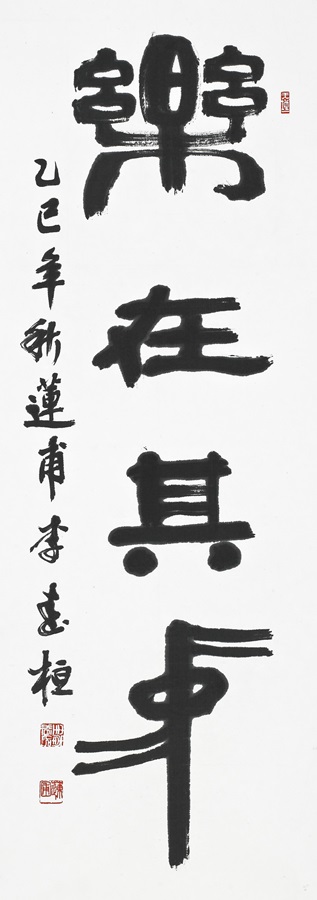 樂在其中
乙巳年秋蓮甫李春桓